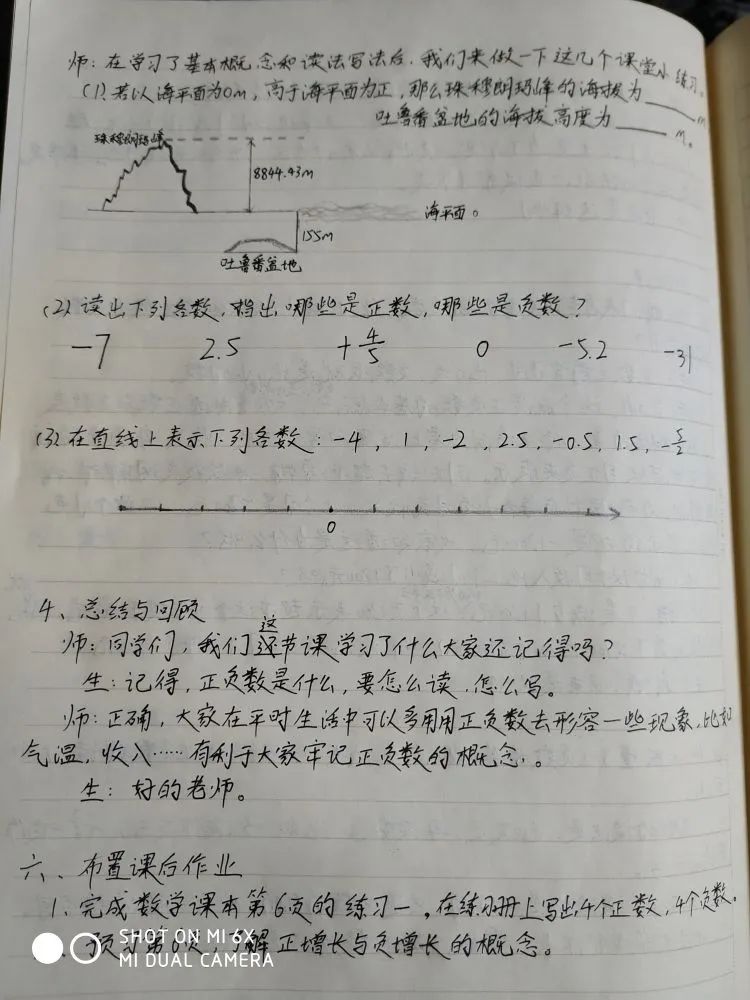 师：在学习了基本概念和读法写法后，我们来做一下这几个课堂小练习。
(1)、若以海平面为0m，高于海平面为正，那么珠穆朗玛峰的海拔为____m
吐鲁番盆地的海拔高度为____m。
珠穆朗玛峰
8844.43m
海平面。
155m
吐鲁番盆地
(2) 读出下列各数，指出哪些是正数，哪些是负数？
-7 2.5 +4/5 0 -5.2 -31
(3) 在直线上表示下列各数：-4，1，-2，2.5，-0.5，1.5，-5/2
0
4、总结与回顾
这
师：同学们，我们还节课学习了什么大家还记得吗？
生：记得，正负数是什么，要怎么读，怎么写。
师：正确，大家在平时生活中可以多用用正负数去形容一些现象，比如
气温，收入……有利于大家牢记正负数的概念。
生：好的老师。
六、布置课后作业
1、完成数学课本第6页的练习一。在练习册上写出4个正数，4个负数。
预习第6页，了解正增长与负增长的概念。
SHOT ON MI 6X
MI DUAL CAMERA